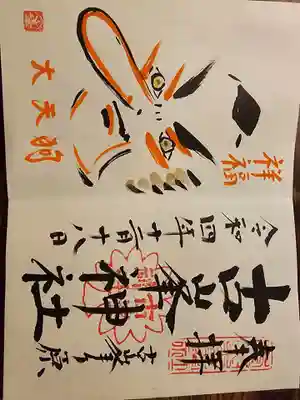 奉拝 古峯ヶ原
古峯神社
令和四年十二月十八日
祥福
大天狗